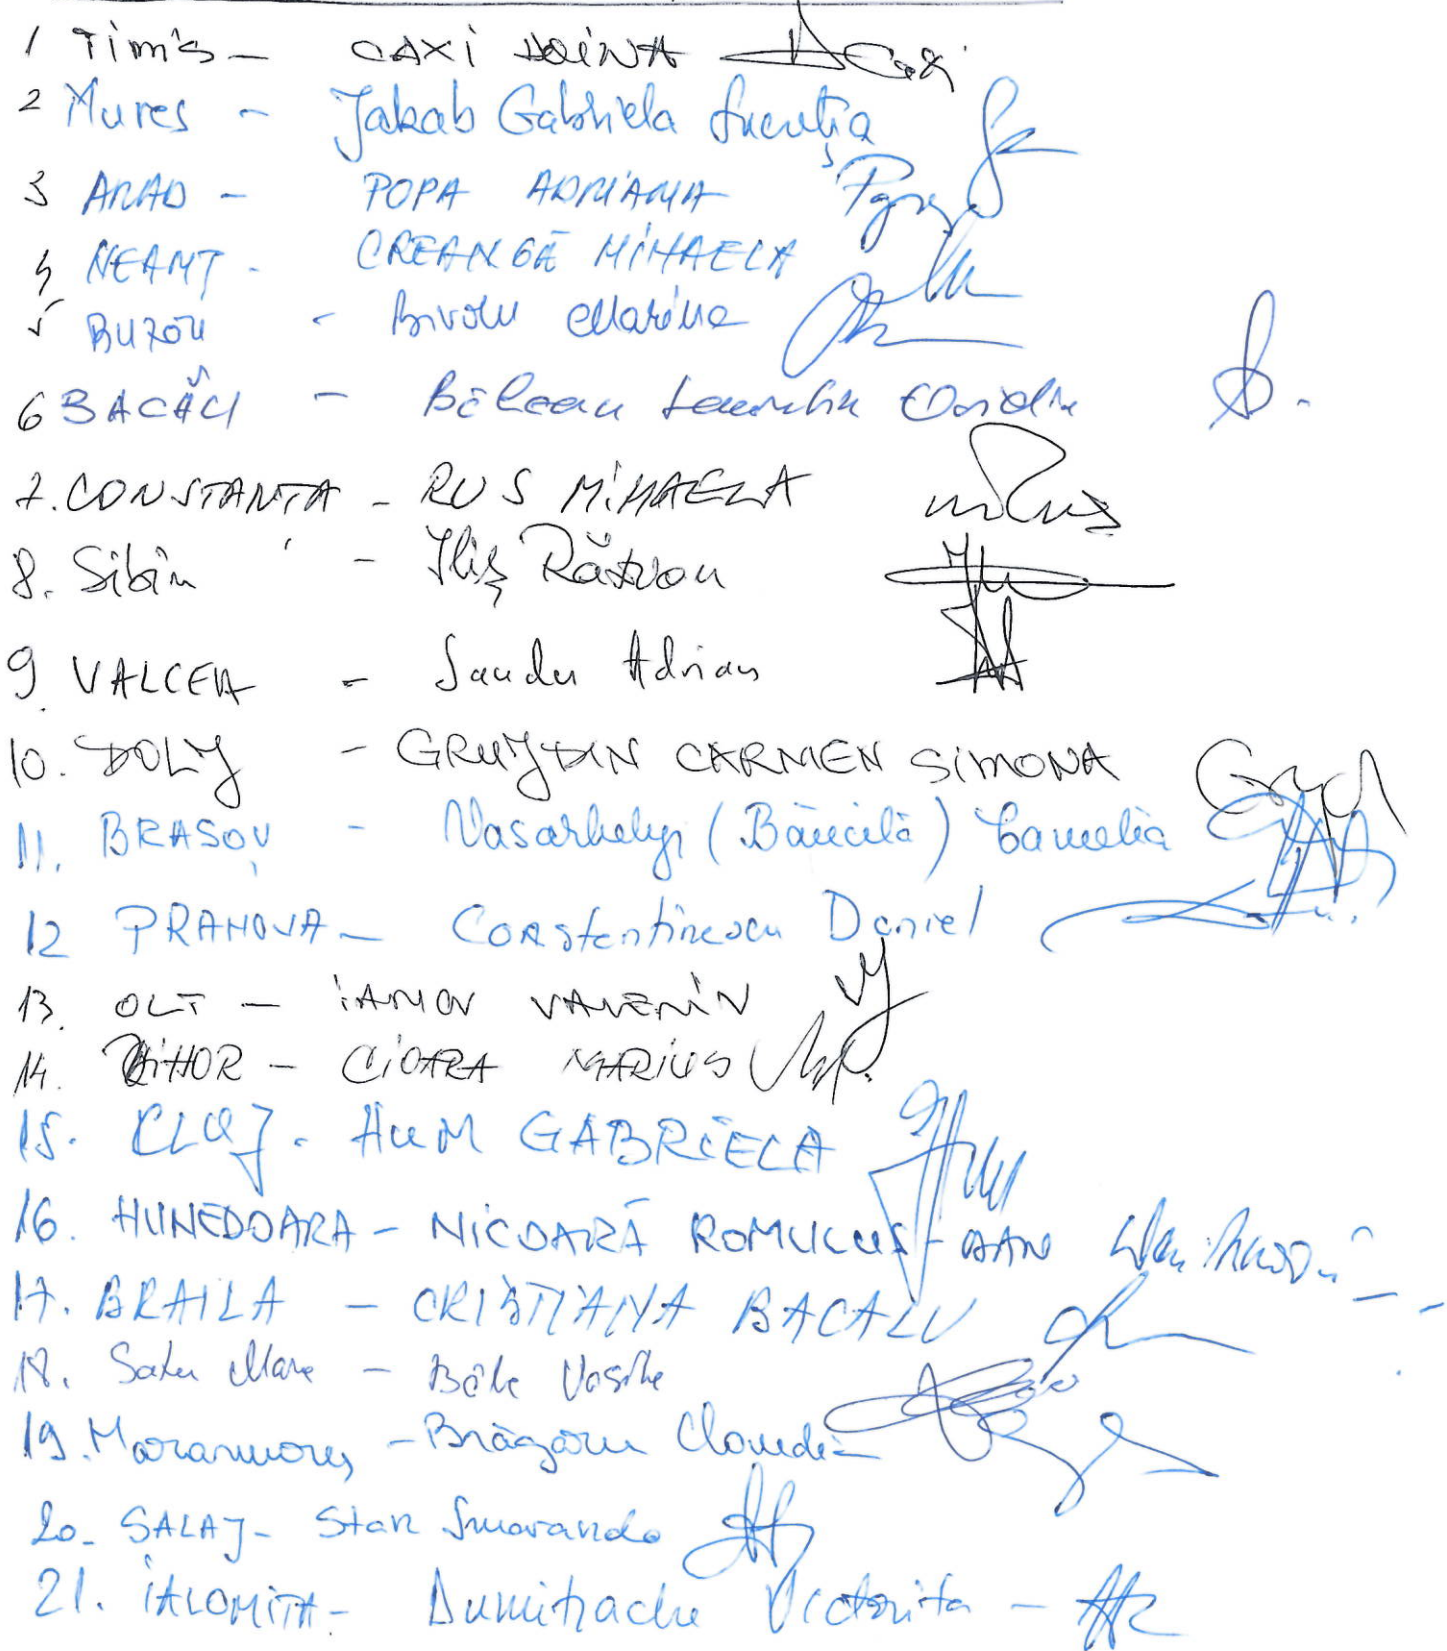 1 Timiș - CAXI DOINA
2 Mureș - Jakab Gabriela Lucreția
3 ARAD - POPA ADRIANA
4 NEAMȚ - CREANGĂ MIHAELA
5 BUZĂU - Bivolu Marina
6 BACĂU - Bălcan Laurențiu Ovidiu
7. CONSTANȚA - RUS MIHAELA
8. Sibiu - Iliș Răzvan
9. VALCEA - Sandu Adrian
10. DOLJ - GRUJDIN CARMEN SIMONA
11. BRAȘOV - Vasarhelyi (Băncilă) Camelia
12 PRAHOVA - Constantinescu Daniel
13. OLT - IANCU
14. BIHOR - CIOARA MARIUS
15. CLUJ - HUM GABRIELA
16. HUNEDOARA - NICOARĂ ROMULUS - DAN
17. BRAILA - CRISTIANA BACALU
18. Satu Mare - Vasile
19. Maramureș - Claudia
20. SALAJ - Stan Smaranda
21. IALOMIȚA - Dumitrache Victorița -